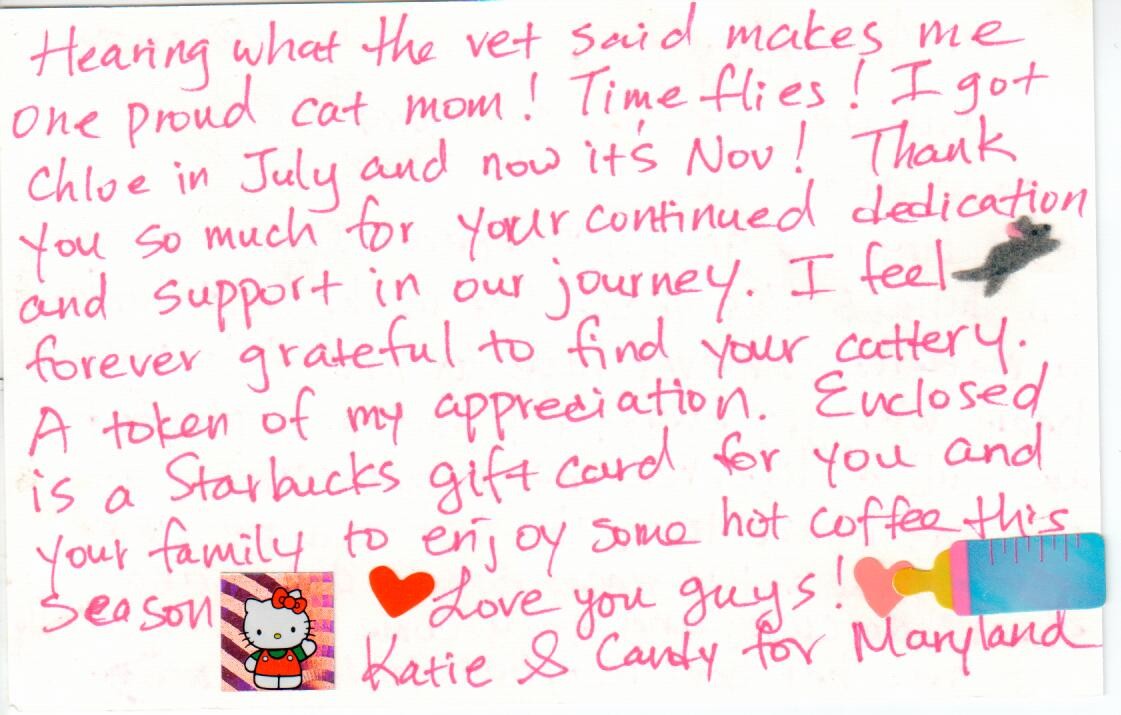 Hearing what the vet said makes me
one proud cat mom! Time flies! I got
Chloe in July and now it's Nov! Thank
you so much for your continued dedication
and support in our journey. I feel
forever grateful to find your cattery.
A token of my appreciation. Enclosed
is a Starbucks gift card for you and
your family to enjoy some hot coffee this
season
Love you guys!
Katie & Candy for Maryland